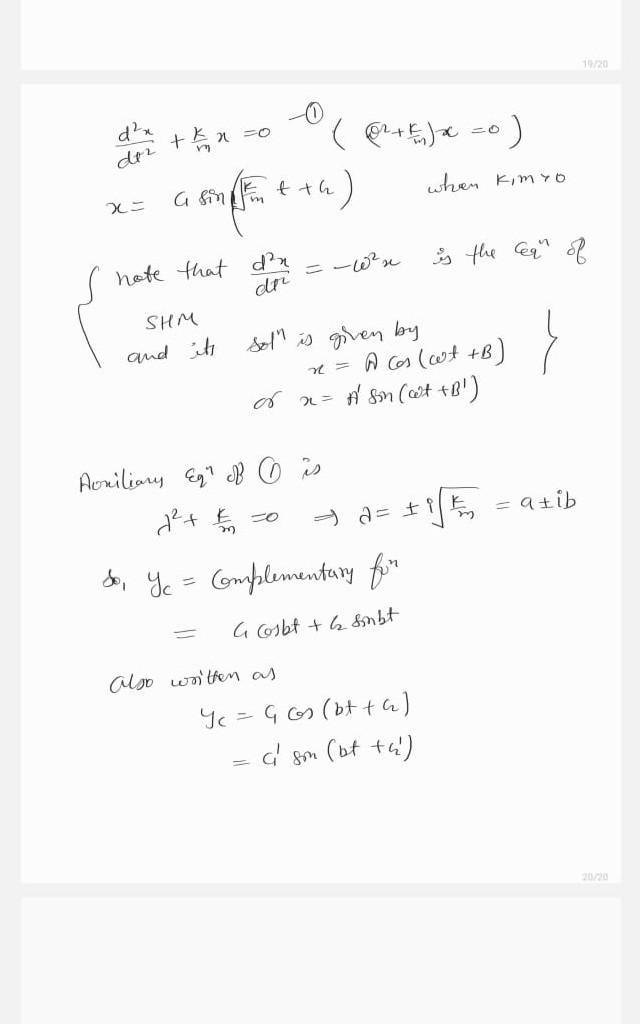 19/20
d²x/dt² + k/m x = 0 —① ( (D² + k/m)x = 0 )
x = C₁ sin(√(k/m) t + C₂) when k, m > 0
{ note that d²x/dt² = -ω²x is the Eqⁿ of
SHM
and its solⁿ is given by
x = A cos(ωt + B) }
or x = A' sin(ωt + B')
Auxiliary Eqⁿ of ① is
λ² + k/m = 0 ⇒ λ = ± i√(k/m) = a ± ib
So, y_c = Complementary fuⁿ
= C₁ cosbt + C₂ sinbt
also written as
y_c = C₁ cos(bt + C₂)
= C₁' sin(bt + C₂')
20/20